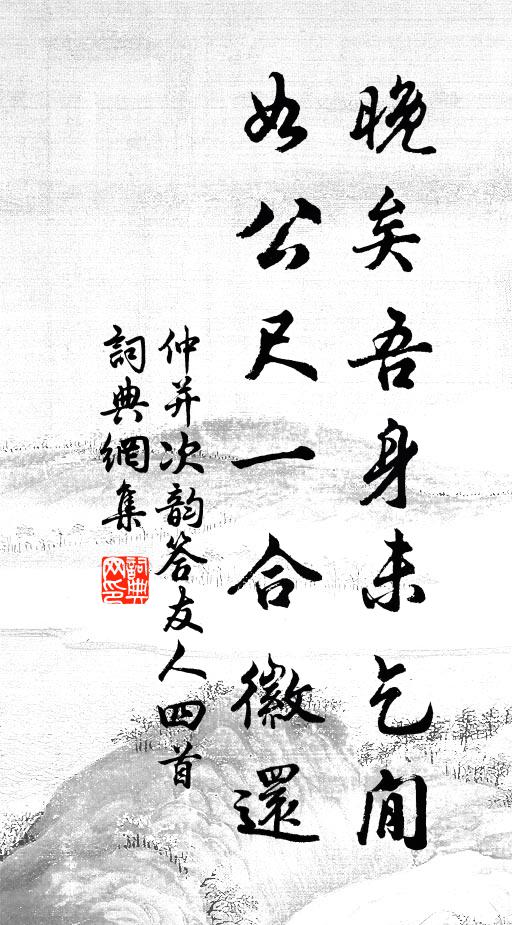 晚矣吾身未乞閒
如公尺一合徽還
仲并次韵答友人四首
詞典網集
詞典網印